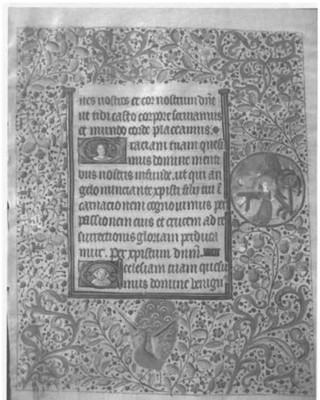 nes nostros et cor nostrum dñe
ut tibi casto corpore seruiamus
et mundo corde placeamus.
Gratiam tuam quesu
mus domine menti
bus nostris infunde. ut qui an
gelo nunciante xpisti filii tui ĩ
carnacionem cognouimus per
passionem eius et crucem ad re
surrectionis gloriam perduca
mur. Per xpistum dnm̃.
Ecclesiam tuam quesu
mus domine benign